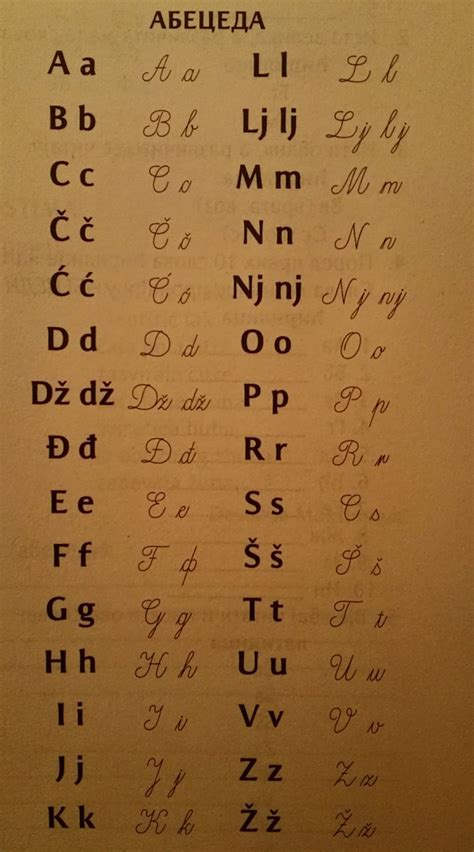 АБЕЦЕДА
A a A a L l L l
B b B b Lj lj Lj lj
C c C c M m M m
Č č Č č N n N n
Ć ć Ć ć Nj nj Nj nj
D d D d O o O o
Dž dž Dž dž P p P p
Đ đ Đ đ R r R r
E e E e S s S s
F f F f Š š Š š
G g G g T t T t
H h H h U u U u
I i I i V v V v
J j J j Z z Z z
K k K k Ž ž Ž ž